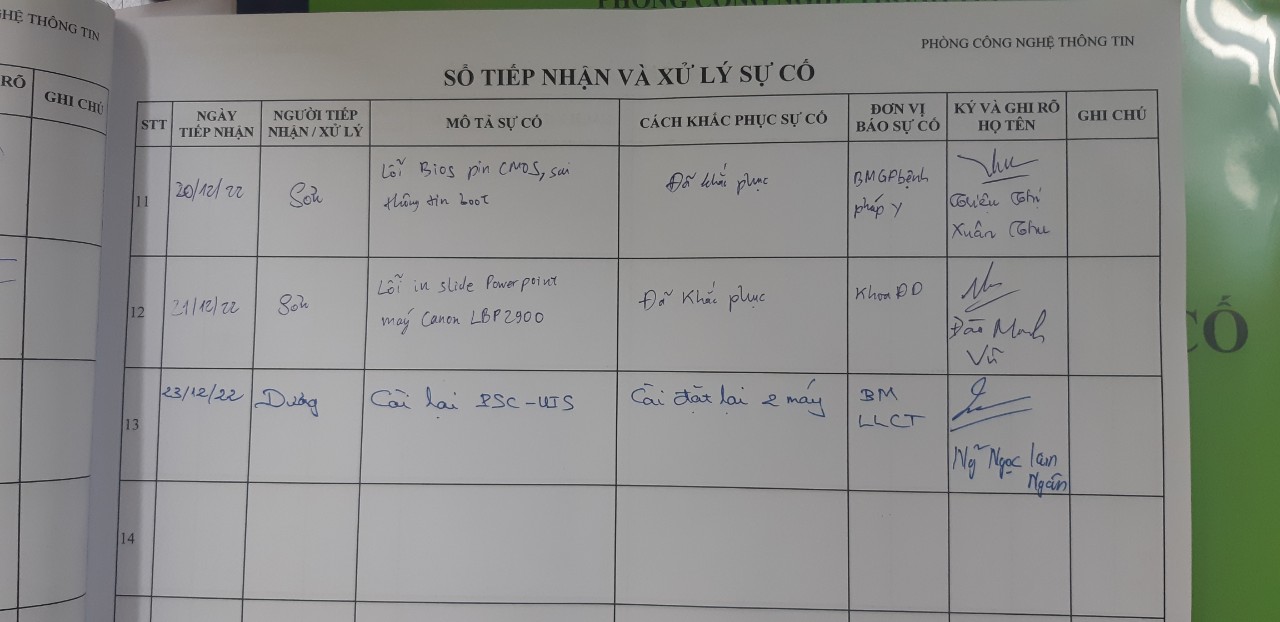 HỆ THÔNG TIN
RÕ
GHI CHÚ
PHÒNG CÔNG NGHỆ
PHÒNG CÔNG NGHỆ THÔNG TIN
SỔ TIẾP NHẬN VÀ XỬ LÝ SỰ CỐ
STT
NGÀY
TIẾP NHẬN
NGƯỜI TIẾP
NHẬN / XỬ LÝ
MÔ TẢ SỰ CÓ
CÁCH KHẮC PHỤC SỰ CÓ
ĐƠN VỊ
BÁO SỰ CÓ
KÝ VÀ GHI RÕ
HỌ TÊN
GHI CHÚ
11
20/12/22
Sơn
Lỗi Bios pin CMOS, sai
thông tin boot
Đã khắc phục
BMGPbệnh
pháp Y
Thu
Thiều Thị
Xuân Thu
12
21/12/22
Sơn
Lỗi in slide Powerpoint
máy Canon LBP2900
Đã Khắc phục
Khoa ĐD
Đào Manh
Vũ
13
23/12/22
Dương
Cài lại PSC-UIS
Cài đặt lại 2 máy
BM
LLCT
Ngọc Lan
Ngân
14
CỐ